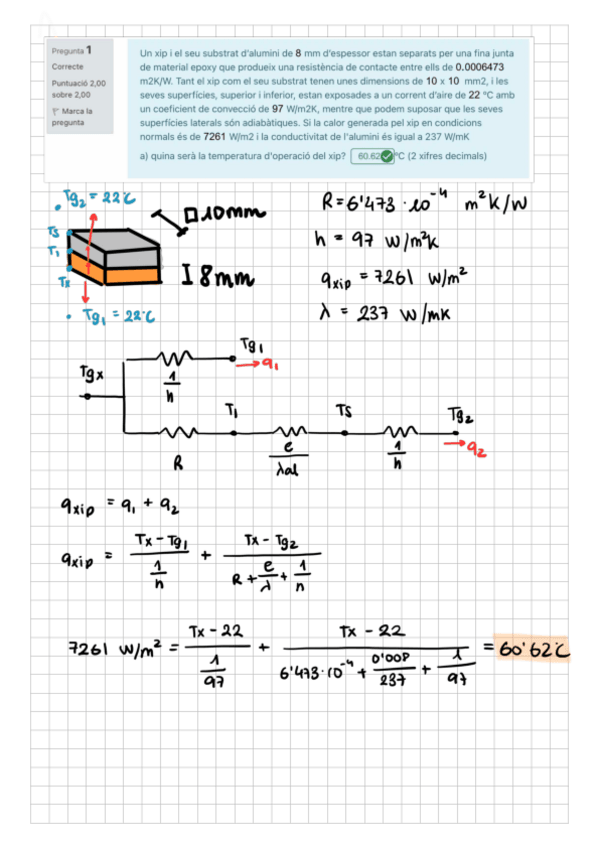 Pregunta 1
Correcte
Puntuació 2,00
sobre 2,00
Marca la
pregunta
Un xip i el seu substrat d'alumini de 8 mm d'espessor estan separats per una fina junta
de material epoxy que produeix una resistència de contacte entre ells de 0.0006473
m2K/W. Tant el xip com el seu substrat tenen unes dimensions de 10 x 10 mm2, i les
seves superfícies, superior i inferior, estan exposades a un corrent d'aire de 22 ºC amb
un coeficient de convecció de 97 W/m2K, mentre que podem suposar que les seves
superfícies laterals són adiabàtiques. Si la calor generada pel xip en condicions
normals és de 7261 W/m2 i la conductivitat de l'alumini és igual a 237 W/mK
a) quina serà la temperatura d'operació del xip? 60.62 ºC (2 xifres decimals)
Tg2 = 22°C
10mm
Ts
T1
Tx
8mm
Tg1 = 22°C
R = 6'473 · 10^-4 m²K/W
h = 97 W/m²K
qxip = 7261 W/m²
λ = 237 W/mK
Tgx
1/h
Tg1
q1
R
T1
e/λal
Ts
1/h
Tg2
q2
qxip = q1 + q2
qxip = (Tx - Tg1)/(1/h) + (Tx - Tg2)/(R + e/λ + 1/h)
7261 W/m² = (Tx - 22)/(1/97) + (Tx - 22)/(6'473·10^-4 + 0'008/237 + 1/97) = 60'62°C